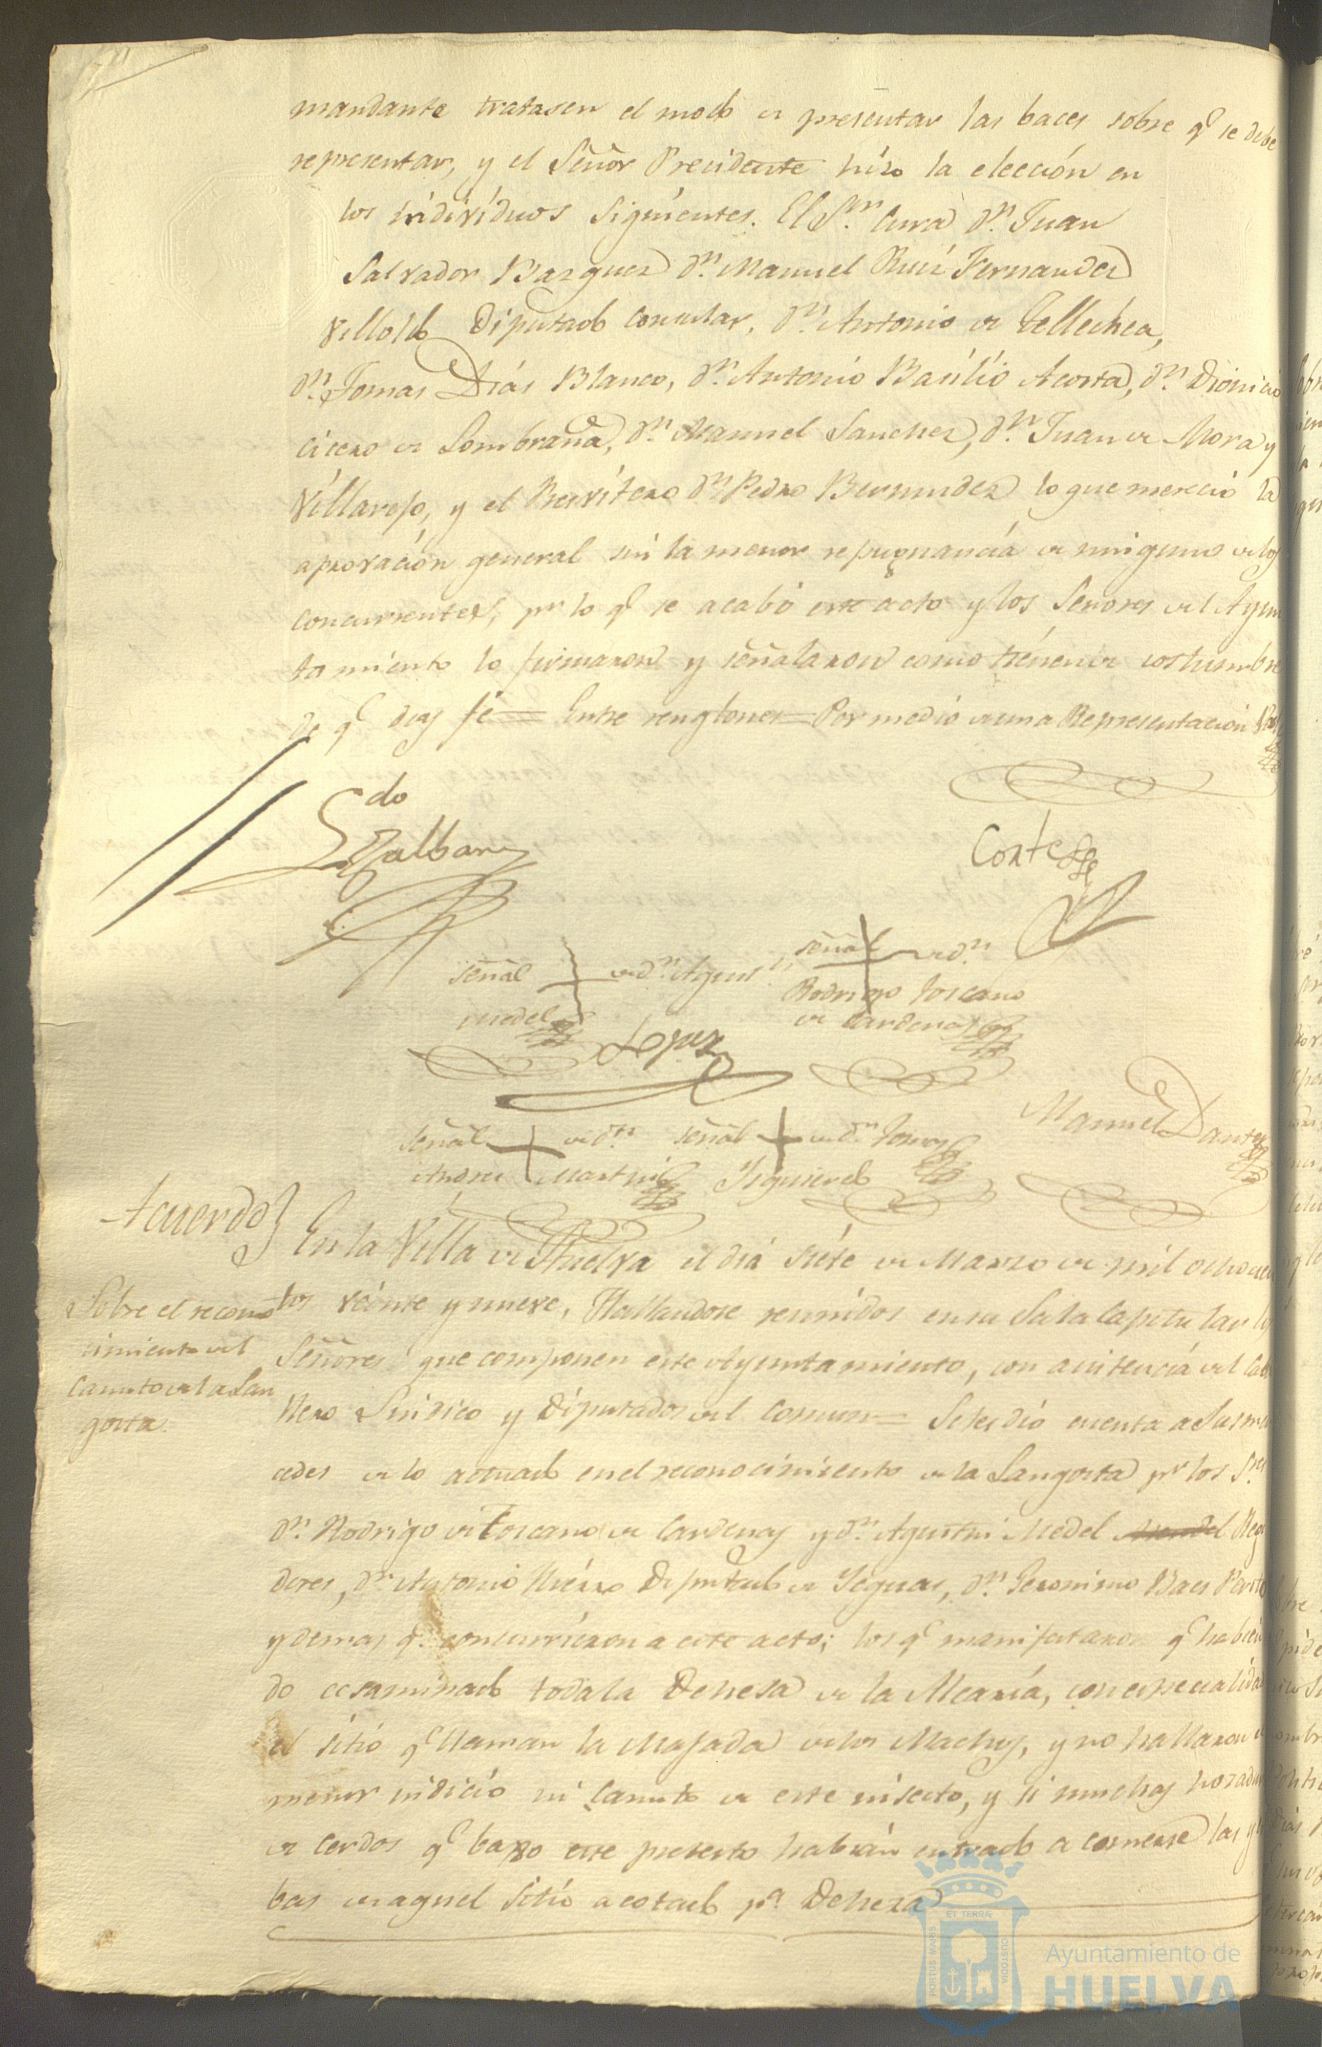 mandante tratasen el modo de presentar las baces sobre qe se debe
representar, y el Señor Precidente hizo la elección en
los individuos siguientes. El Sor. Cura dn. Juan
Salvador Bazquez dn. Manuel Ruiz Fernandez
Villoldo Diputado Consular, dn. Antonio de Tellechea,
dn. Tomas Diás Blanco, dn. Antonio Basilio Acosta, dn. Dionicio
Cicero de Sombraña, dn. Manuel Sanchez, dn. Juan de Mora y
Villarejo, y el Presvítero dn. Pedro Bermudez lo que mereció la
aprovación general sin la menor repugnancia de ninguno de los
concurrentes; pr lo qe se acabó este acto y los Señores del Ayun
tamiento lo firmaron y señalaron como tienen de costumbre
de qe doy fé = Entre renglones = Por medio de una Representación
Ldo
Galban
Cortes
señal de dn. Agusn
señal de dn.
Medel
Rodrigo Toscano
de Cardenas
Lopez
señal de dn. señal de dn. Tomas
Manuel Dante
Andres Martin Yzquierdo
Acuerdo
En la Villa de Huelva el diá siete de Marzo de mil ochocien
Sobre el recono
cimiento del
Canuto de la Lan
gosta.
tos veinte y nueve, Hallandose reunidos en su Sala Capitular los
Señores que componen este Ayuntamiento, con asistencia del Cava
llero Sindico y Diputados del comun = Se les dió cuenta a Sus mer
cedes de lo actuado en el reconocimiento de la Langosta pr los Sres
dn. Rodrigo de Toscano de Cardenas y dn. Agustin Medel Regi
dores, dn. Antonio Diputado de Yeguas, dn. Jeronimo Baes
y demas qe concurrieron a este acto; los qe manifestaron qe habien
do ecsaminado toda la Dehesa de la Alcaria, con especialidad
el sitio qe llaman la Majada de los Machos, y no hallaron el
menor indicio ni Canuto de este insecto, y si muchas horadas
de cerdos qe baxo este pretexto habian entrado a comerse las yer
bas de aquel sitio acotado pa. Dehesa
PORTUS MARIS ET TERRÆ CUSTODIA
Ayuntamiento de
HUELVA